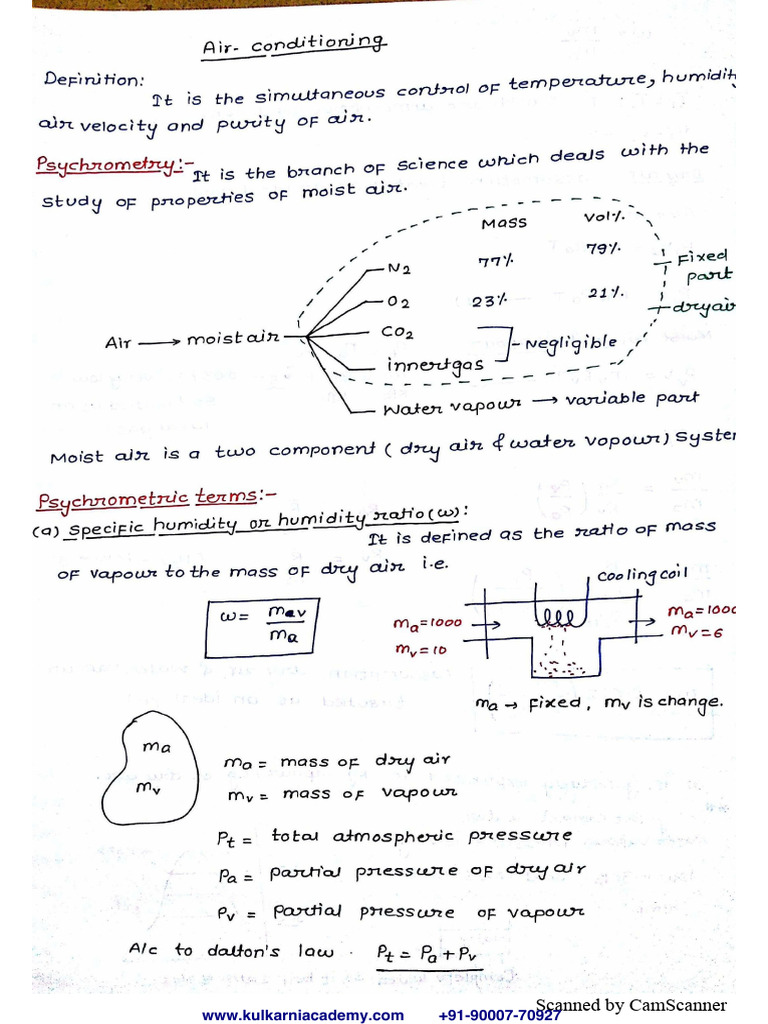 Air-conditioning
Definition:
It is the simultaneous control of temperature, humidity
air velocity and purity of air.
Psychrometry:- It is the branch of science which deals with the
study of properties of moist air.
Mass Vol%
N2 77% 79%
Fixed part
O2 23% 21%
dry air
Air → moist air
CO2
innert gas
Negligible
Water vapour → variable part
Moist air is a two component (dry air & water vopour) System
Psychrometric terms:-
(a) Specific humidity or humidity ratio (ω):
It is defined as the ratio of mass
of vapour to the mass of dry air i.e.
cooling coil
ω = mav/ma
ma=1000
mv=10
ma=1000
mv=6
ma → fixed, mv is change.
ma
mv
ma = mass of dry air
mv = mass of vapour
Pt = total atmospheric pressure
Pa = partial pressure of dry air
Pv = partial pressure of vapour
A/c to dalton's law. Pt = Pa + Pv
Scanned by CamScanner
www.kulkarniacademy.com +91-90007-70927